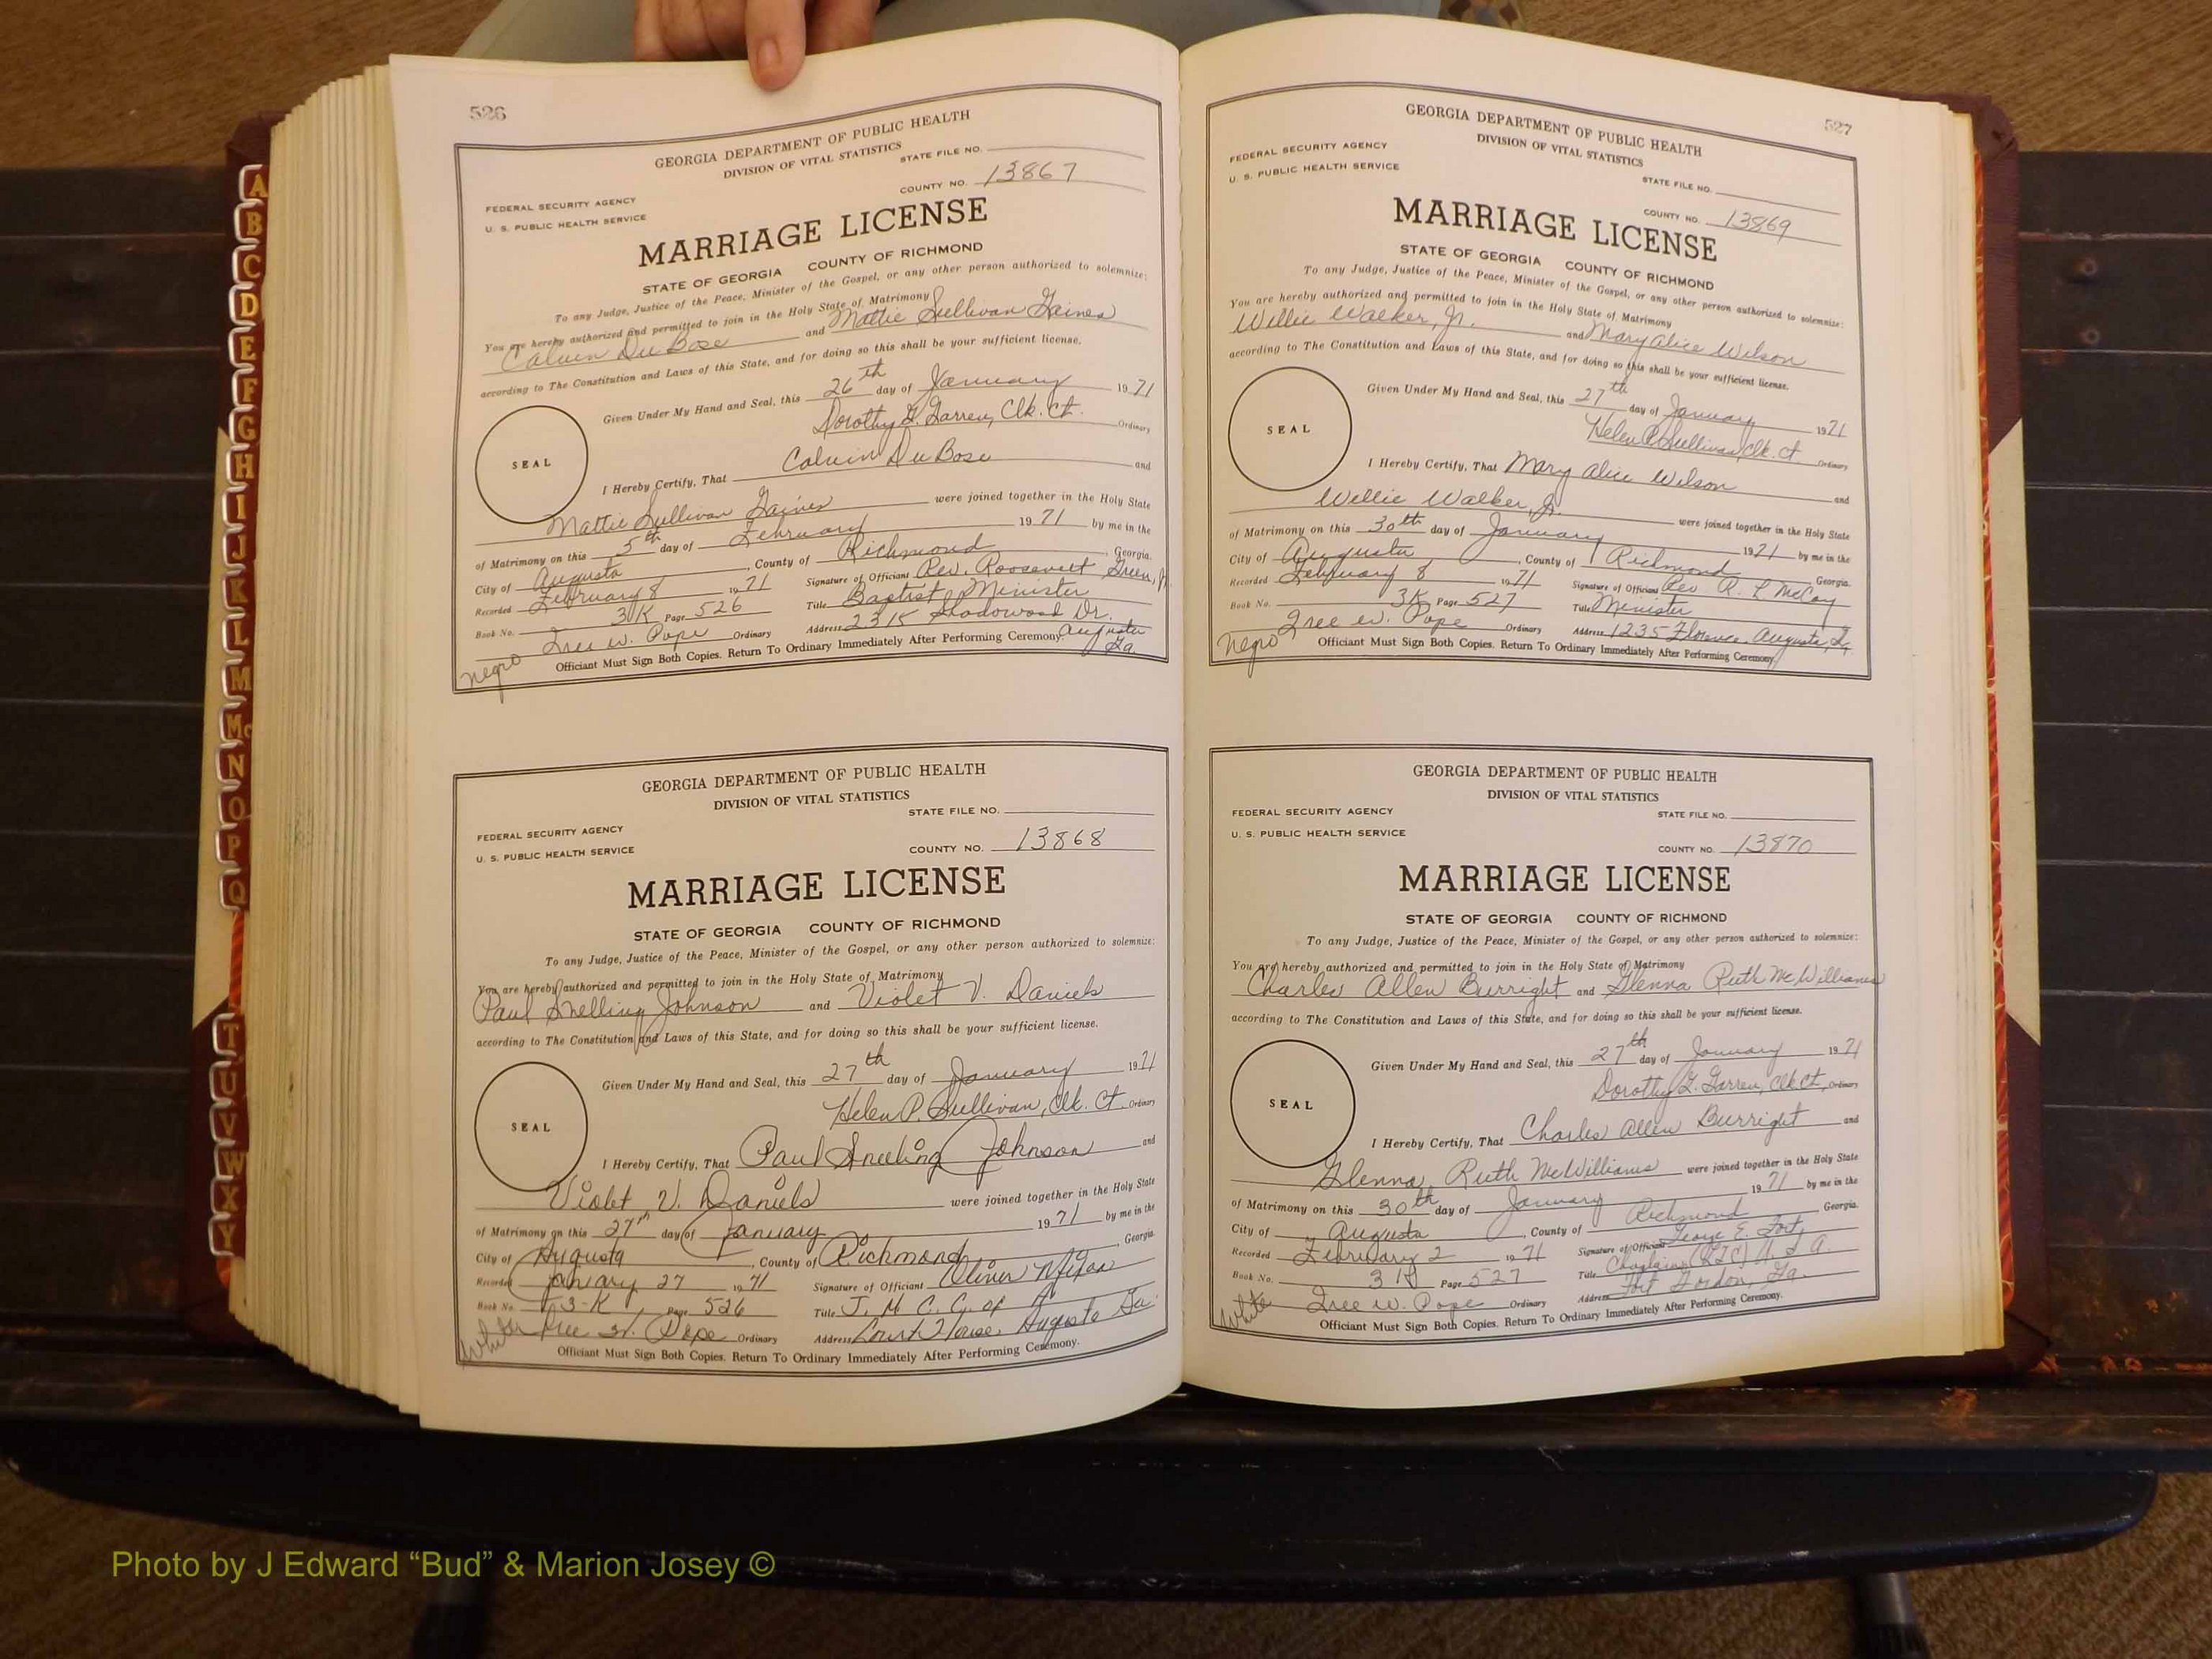 526
GEORGIA DEPARTMENT OF PUBLIC HEALTH
DIVISION OF VITAL STATISTICS
STATE FILE NO.
COUNTY NO. 13867
FEDERAL SECURITY AGENCY
U. S. PUBLIC HEALTH SERVICE
MARRIAGE LICENSE
STATE OF GEORGIA COUNTY OF RICHMOND
To any Judge, Justice of the Peace, Minister of the Gospel, or any other person authorized to solemnize:
You are hereby authorized and permitted to join in the Holy State of Matrimony
Calvin DuBose and Mattie Sullivan Gaines
according to The Constitution and Laws of this State, and for doing so this shall be your sufficient license.
Given Under My Hand and Seal, this 26th day of January 1971
Dorothy G. Garren, Clk. Ct. Ordinary
SEAL
I Hereby Certify, That Calvin DuBose and
Mattie Sullivan Gaines were joined together in the Holy State
of Matrimony on this 5th day of February 1971 by me in the
City of Augusta, County of Richmond, Georgia.
Recorded February 8 1971 Signature of Officiant Rev. Roosevelt Green, Jr.
Book No. 3K Page 526 Title Baptist Minister
Tree W. Pope Ordinary Address 2315 Shadowood Dr.
Augusta Ga.
Officiant Must Sign Both Copies. Return To Ordinary Immediately After Performing Ceremony.
negro
GEORGIA DEPARTMENT OF PUBLIC HEALTH
DIVISION OF VITAL STATISTICS
STATE FILE NO.
FEDERAL SECURITY AGENCY
U. S. PUBLIC HEALTH SERVICE
COUNTY NO. 13868
MARRIAGE LICENSE
STATE OF GEORGIA COUNTY OF RICHMOND
To any Judge, Justice of the Peace, Minister of the Gospel, or any other person authorized to solemnize:
You are hereby authorized and permitted to join in the Holy State of Matrimony
Paul Snelling Johnson and Violet V. Daniels
according to The Constitution and Laws of this State, and for doing so this shall be your sufficient license.
Given Under My Hand and Seal, this 27th day of January 1971
Helen P. Sullivan, Clk. Ct. Ordinary
SEAL
I Hereby Certify, That Paul Snelling Johnson and
Violet V. Daniels were joined together in the Holy State
of Matrimony on this 27th day of January 1971 by me in the
City of Augusta, County of Richmond, Georgia.
Recorded January 27 1971 Signature of Officiant Oliver
Book No. 3-K Page 526 Title J. M. C. C. of A
Pope Ordinary Address Court House, Augusta Ga.
white
Officiant Must Sign Both Copies. Return To Ordinary Immediately After Performing Ceremony.
527
GEORGIA DEPARTMENT OF PUBLIC HEALTH
DIVISION OF VITAL STATISTICS
FEDERAL SECURITY AGENCY
U. S. PUBLIC HEALTH SERVICE
STATE FILE NO.
COUNTY NO. 13869
MARRIAGE LICENSE
STATE OF GEORGIA COUNTY OF RICHMOND
To any Judge, Justice of the Peace, Minister of the Gospel, or any other person authorized to solemnize:
You are hereby authorized and permitted to join in the Holy State of Matrimony
Willie Walker, Jr. and Mary Alice Wilson
according to The Constitution and Laws of this State, and for doing so this shall be your sufficient license.
Given Under My Hand and Seal, this 27th day of January 1971
Helen P. Sullivan, Clk. Ct. Ordinary
SEAL
I Hereby Certify, That Mary Alice Wilson and
Willie Walker, Jr. were joined together in the Holy State
of Matrimony on this 30th day of January 1971 by me in the
City of Augusta, County of Richmond, Georgia.
Recorded February 8 1971 Signature of Officiant Rev R. L McCoy
Book No. 3K Page 527 Title Minister
Tree W. Pope Ordinary Address 1235 Florence, Augusta, Ga,
negro
Officiant Must Sign Both Copies. Return To Ordinary Immediately After Performing Ceremony.
GEORGIA DEPARTMENT OF PUBLIC HEALTH
DIVISION OF VITAL STATISTICS
FEDERAL SECURITY AGENCY
U. S. PUBLIC HEALTH SERVICE
STATE FILE NO.
COUNTY NO. 13870
MARRIAGE LICENSE
STATE OF GEORGIA COUNTY OF RICHMOND
To any Judge, Justice of the Peace, Minister of the Gospel, or any other person authorized to solemnize:
You are hereby authorized and permitted to join in the Holy State of Matrimony
Charles Allen Burright and Glenna Ruth McWilliams
according to The Constitution and Laws of this State, and for doing so this shall be your sufficient license.
Given Under My Hand and Seal, this 27th day of January 1971
Dorothy G. Garren, Clk Ct. Ordinary
SEAL
I Hereby Certify, That Charles Allen Burright and
Glenna Ruth McWilliams were joined together in the Holy State
of Matrimony on this 30th day of January 1971 by me in the
City of Augusta, County of Richmond Georgia.
Recorded February 2 1971 Signature of Officiant George E. Fort,
Book No. 3K Page 527 Title Chaplain (LTC) U.S.A.
Tree W. Pope Ordinary Address Fort Gordon, Ga.
white
Officiant Must Sign Both Copies. Return To Ordinary Immediately After Performing Ceremony.
A
B
C
D
E
F
G
H
I
J
K
L
M
Mc
N
O
P
Q
T
U
V
W
X
Y
Photo by J Edward “Bud” & Marion Josey ©